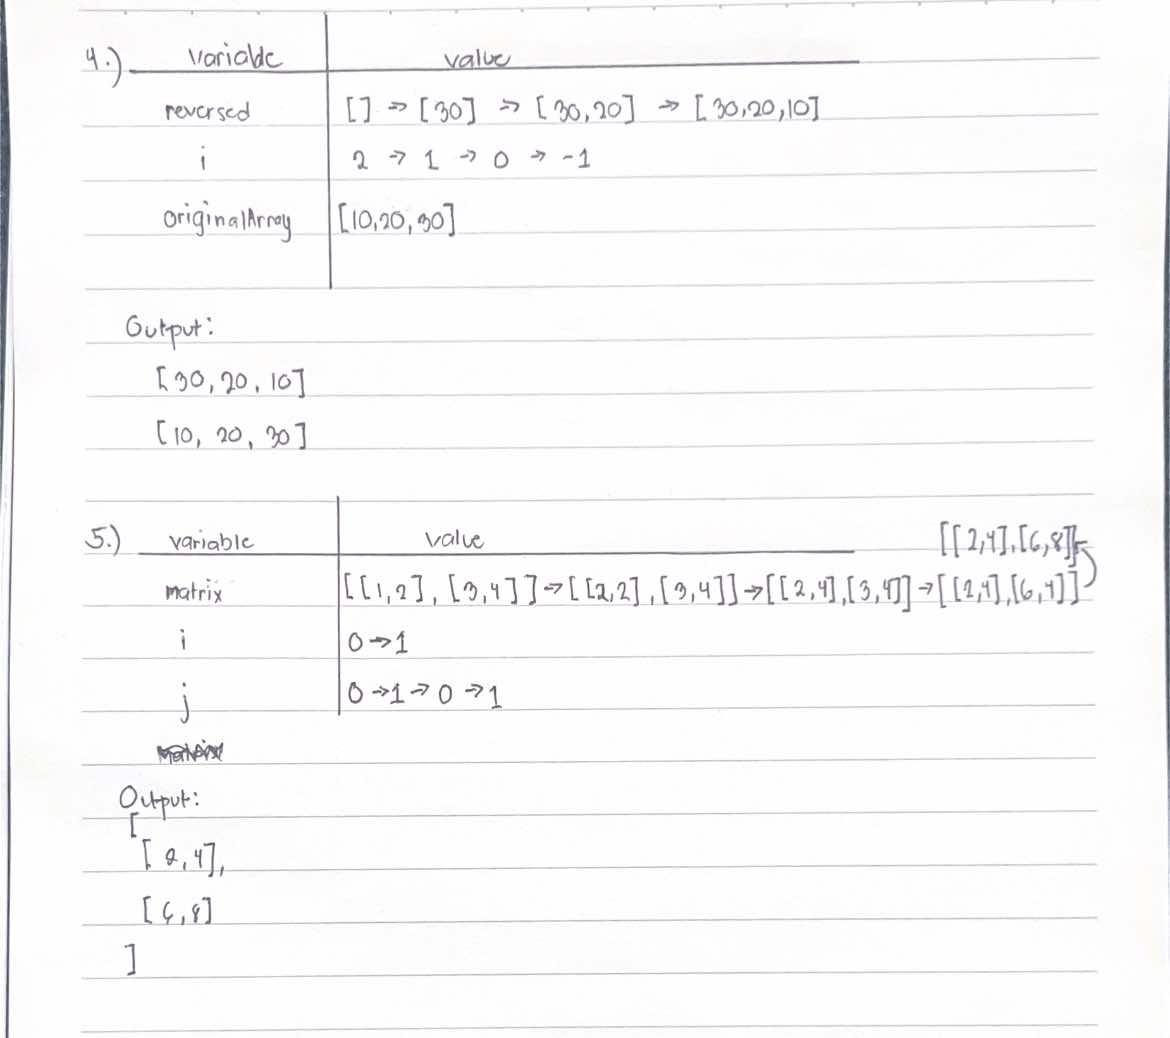 4.) variable value
reversed [] → [30] → [30,20] → [30,20,10]
i 2 → 1 → 0 → -1
originalArray [10,20,30]
Output:
[30, 20, 10]
[10, 20, 30]
5.) variable value
matrix [[1,2], [3,4]] → [[2,2], [3,4]] → [[2,4],[3,4]] → [[2,4],[6,4]]
[[2,4],[6,8]]
i 0 → 1
j 0 → 1 → 0 → 1
Output:
[
[2,4],
[6,8]
]